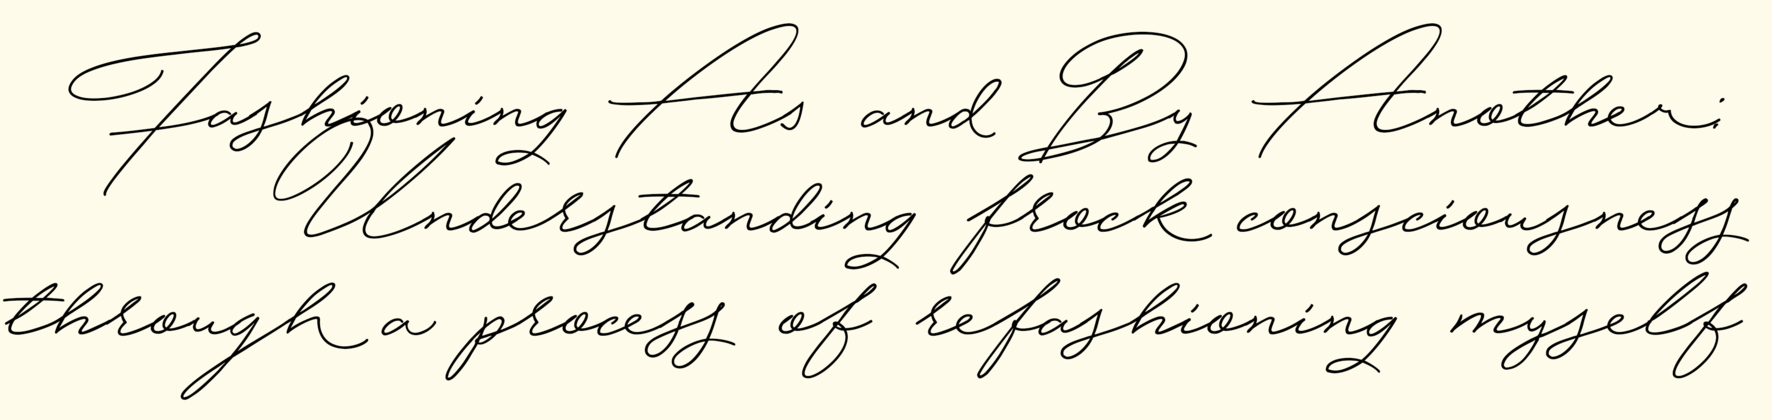 Fashioning As and By Another:
Understanding frock consciousness
through a process of refashioning myself